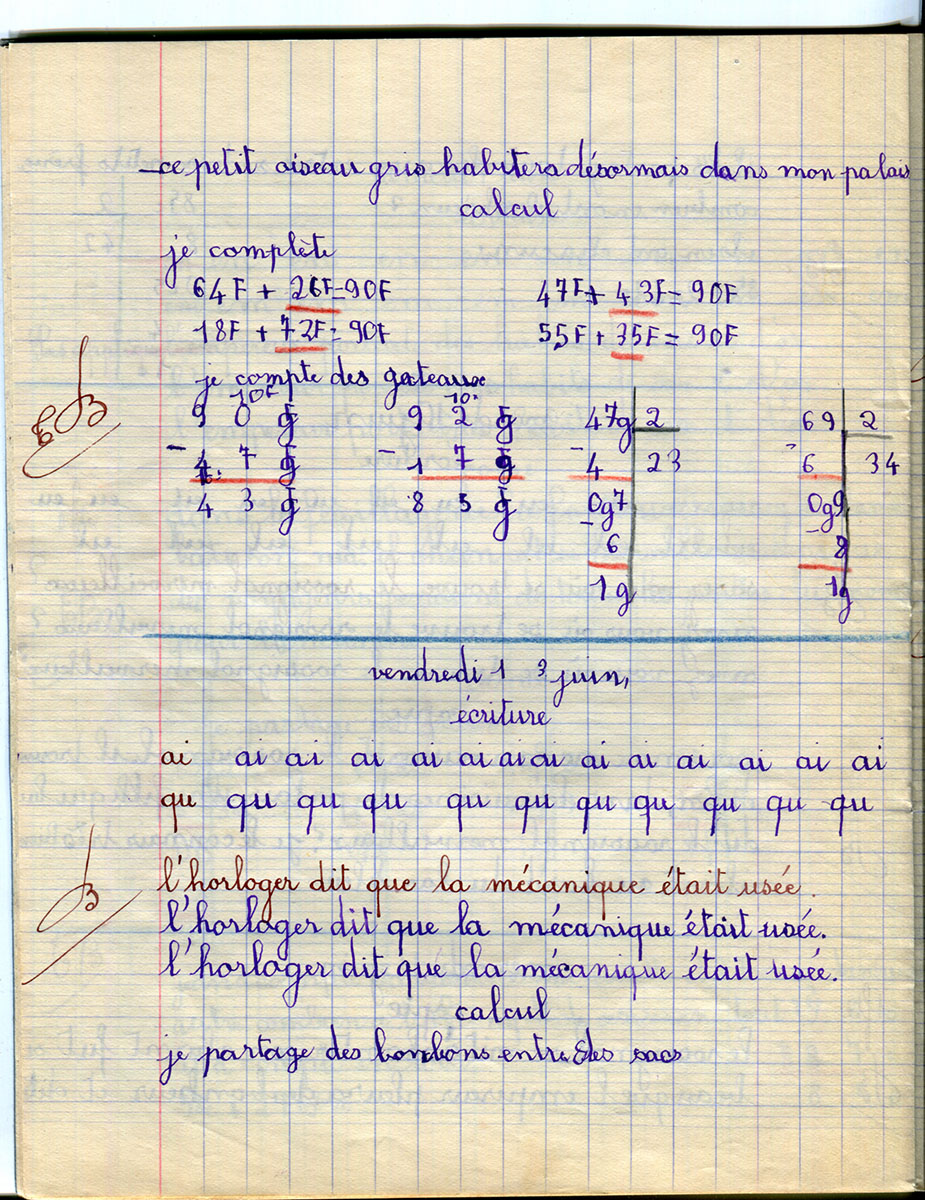 ce petit oiseau gris habitera désormais dans mon palais
calcul
je complète
64F + 26F = 90F 47F + 43F = 90F
18F + 72F = 90F 55F + 35F = 90F
je compte des gateaux
10F 10
9 0 g 9 2 g 47g 2 69 2
- 4 7 g - 1 7 g - 4 23 - 6 34
4 3 g 8 5 g 0g7 0g9
- 6 - 8
1g 1g
vendredi 13 juin,
écriture
ai ai ai ai ai ai ai ai ai ai ai ai ai ai
qu qu qu qu qu qu qu qu qu qu qu
l'horloger dit que la mécanique était usée.
l'horloger dit que la mécanique était usée.
l'horloger dit que la mécanique était usée.
calcul
je partage des bonbons entre des sacs